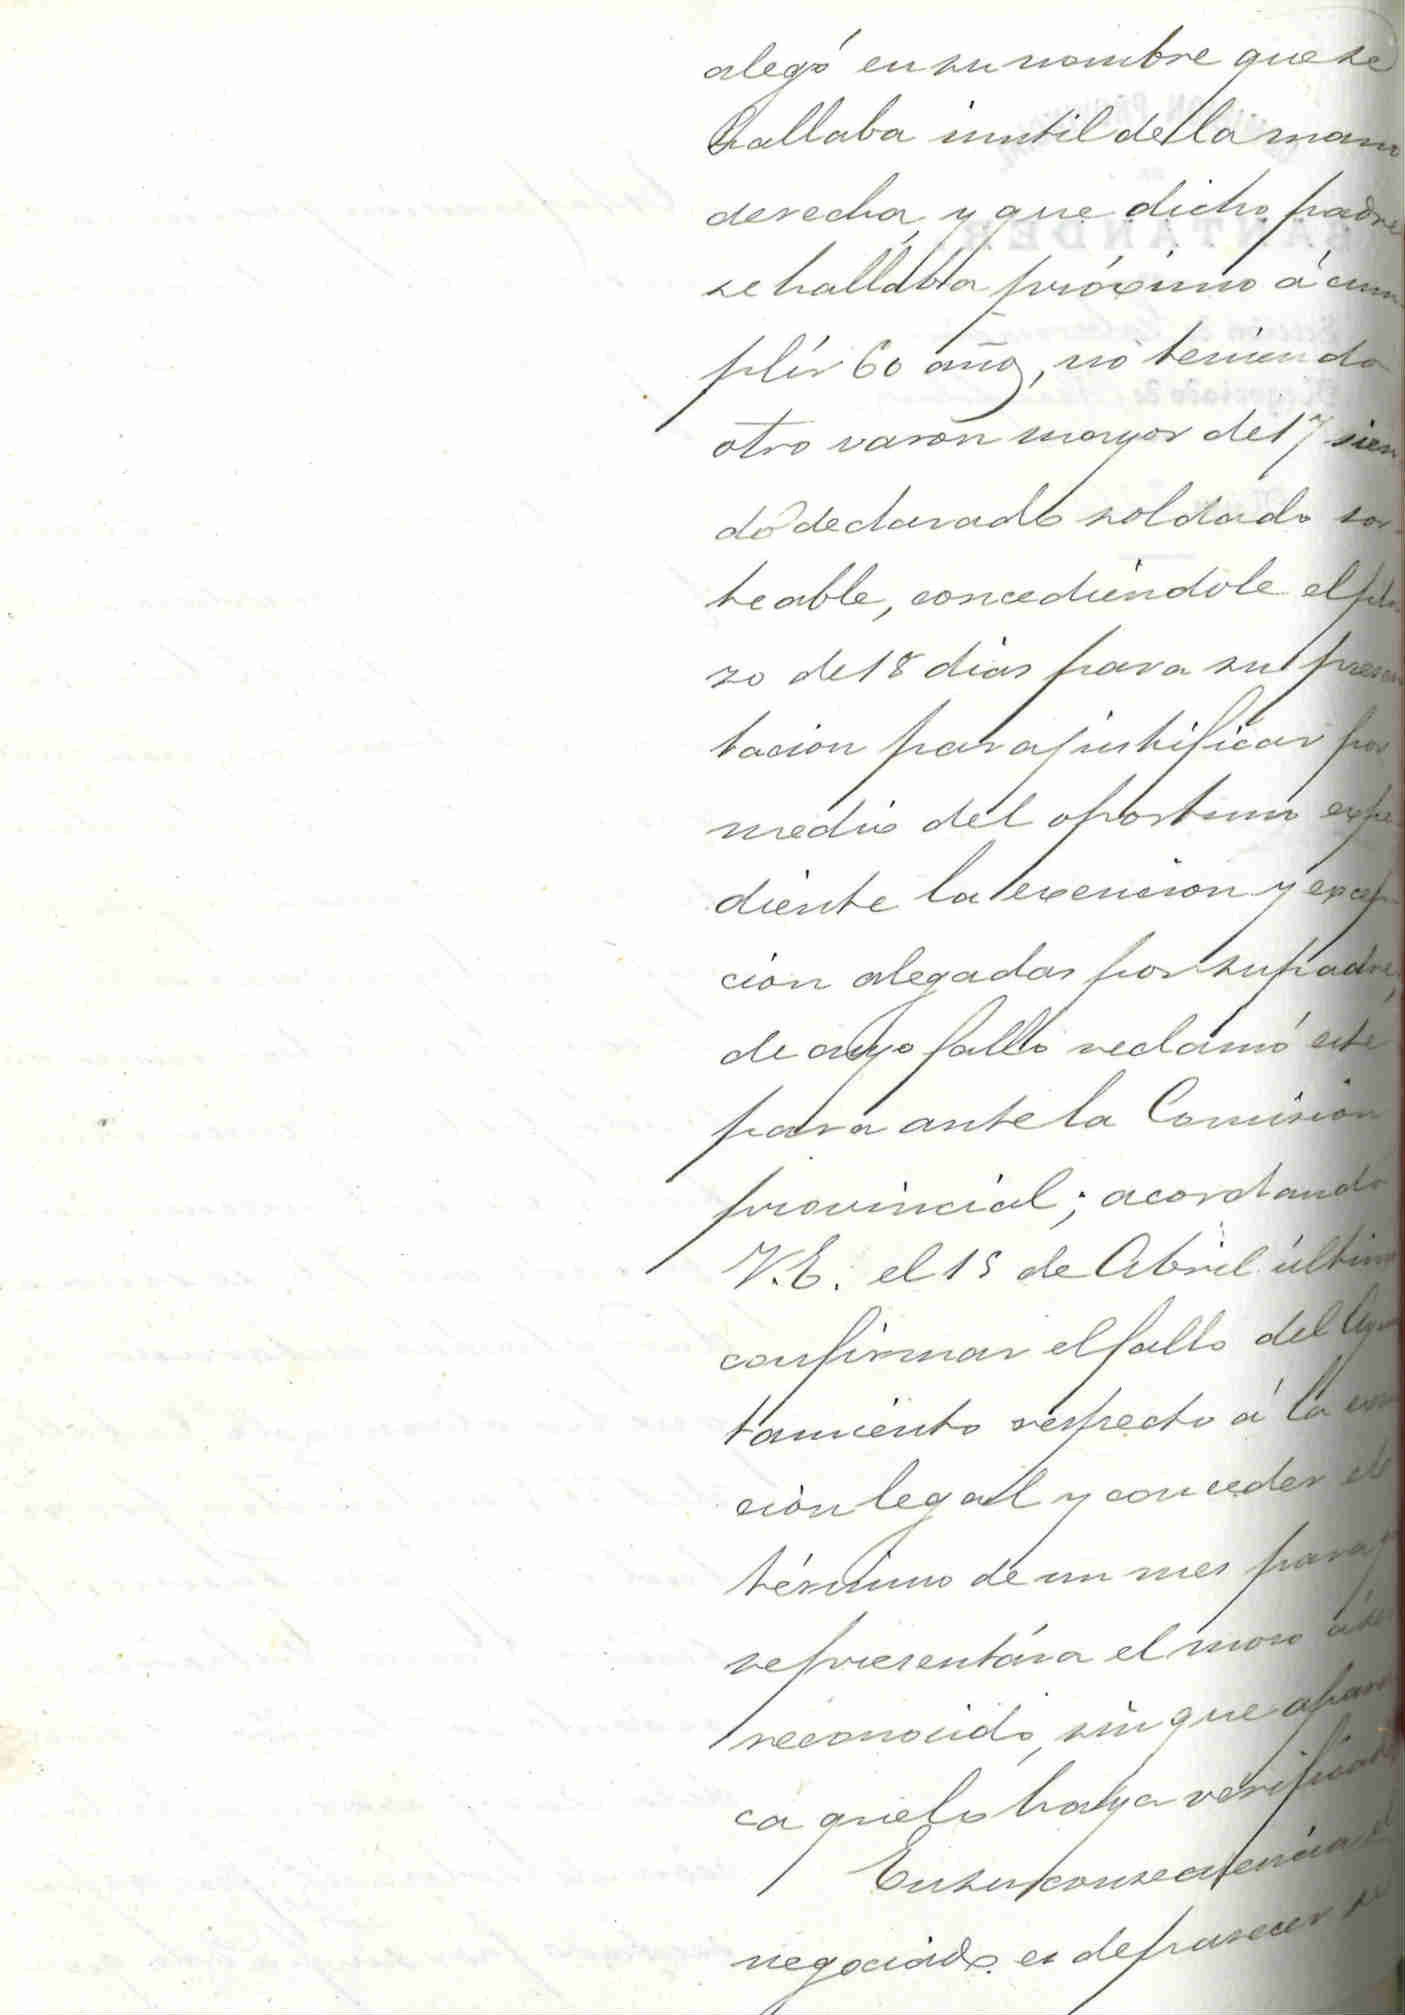 alegó en su nombre que se
hallaba inutil de la mano
derecha, y que dicho padre
se hallaba próximo á cum-
plir 60 años, no teniendo
otro varon mayor de 17 sien-
do declarado soldado sor-
teable, concediéndole el pla-
zo de 18 dias para su presen
tacion para justificar por
medio del oportuno expe-
diente la exencion y excep-
ción alegadas por su padre,
de cuyo fallo reclamó este
para ante la Comisión
provincial; acordando
V.E. el 15 de Abril último
confirmar el fallo del Ayun
tamiento respecto á la exen
ción legal y conceder el
término de un mes para q
represent​ára el mozo á ser
reconocido, sin que aparez
ca que lo haya verificado
En su consecuencia el
negociado es de parecer se
SANTANDER